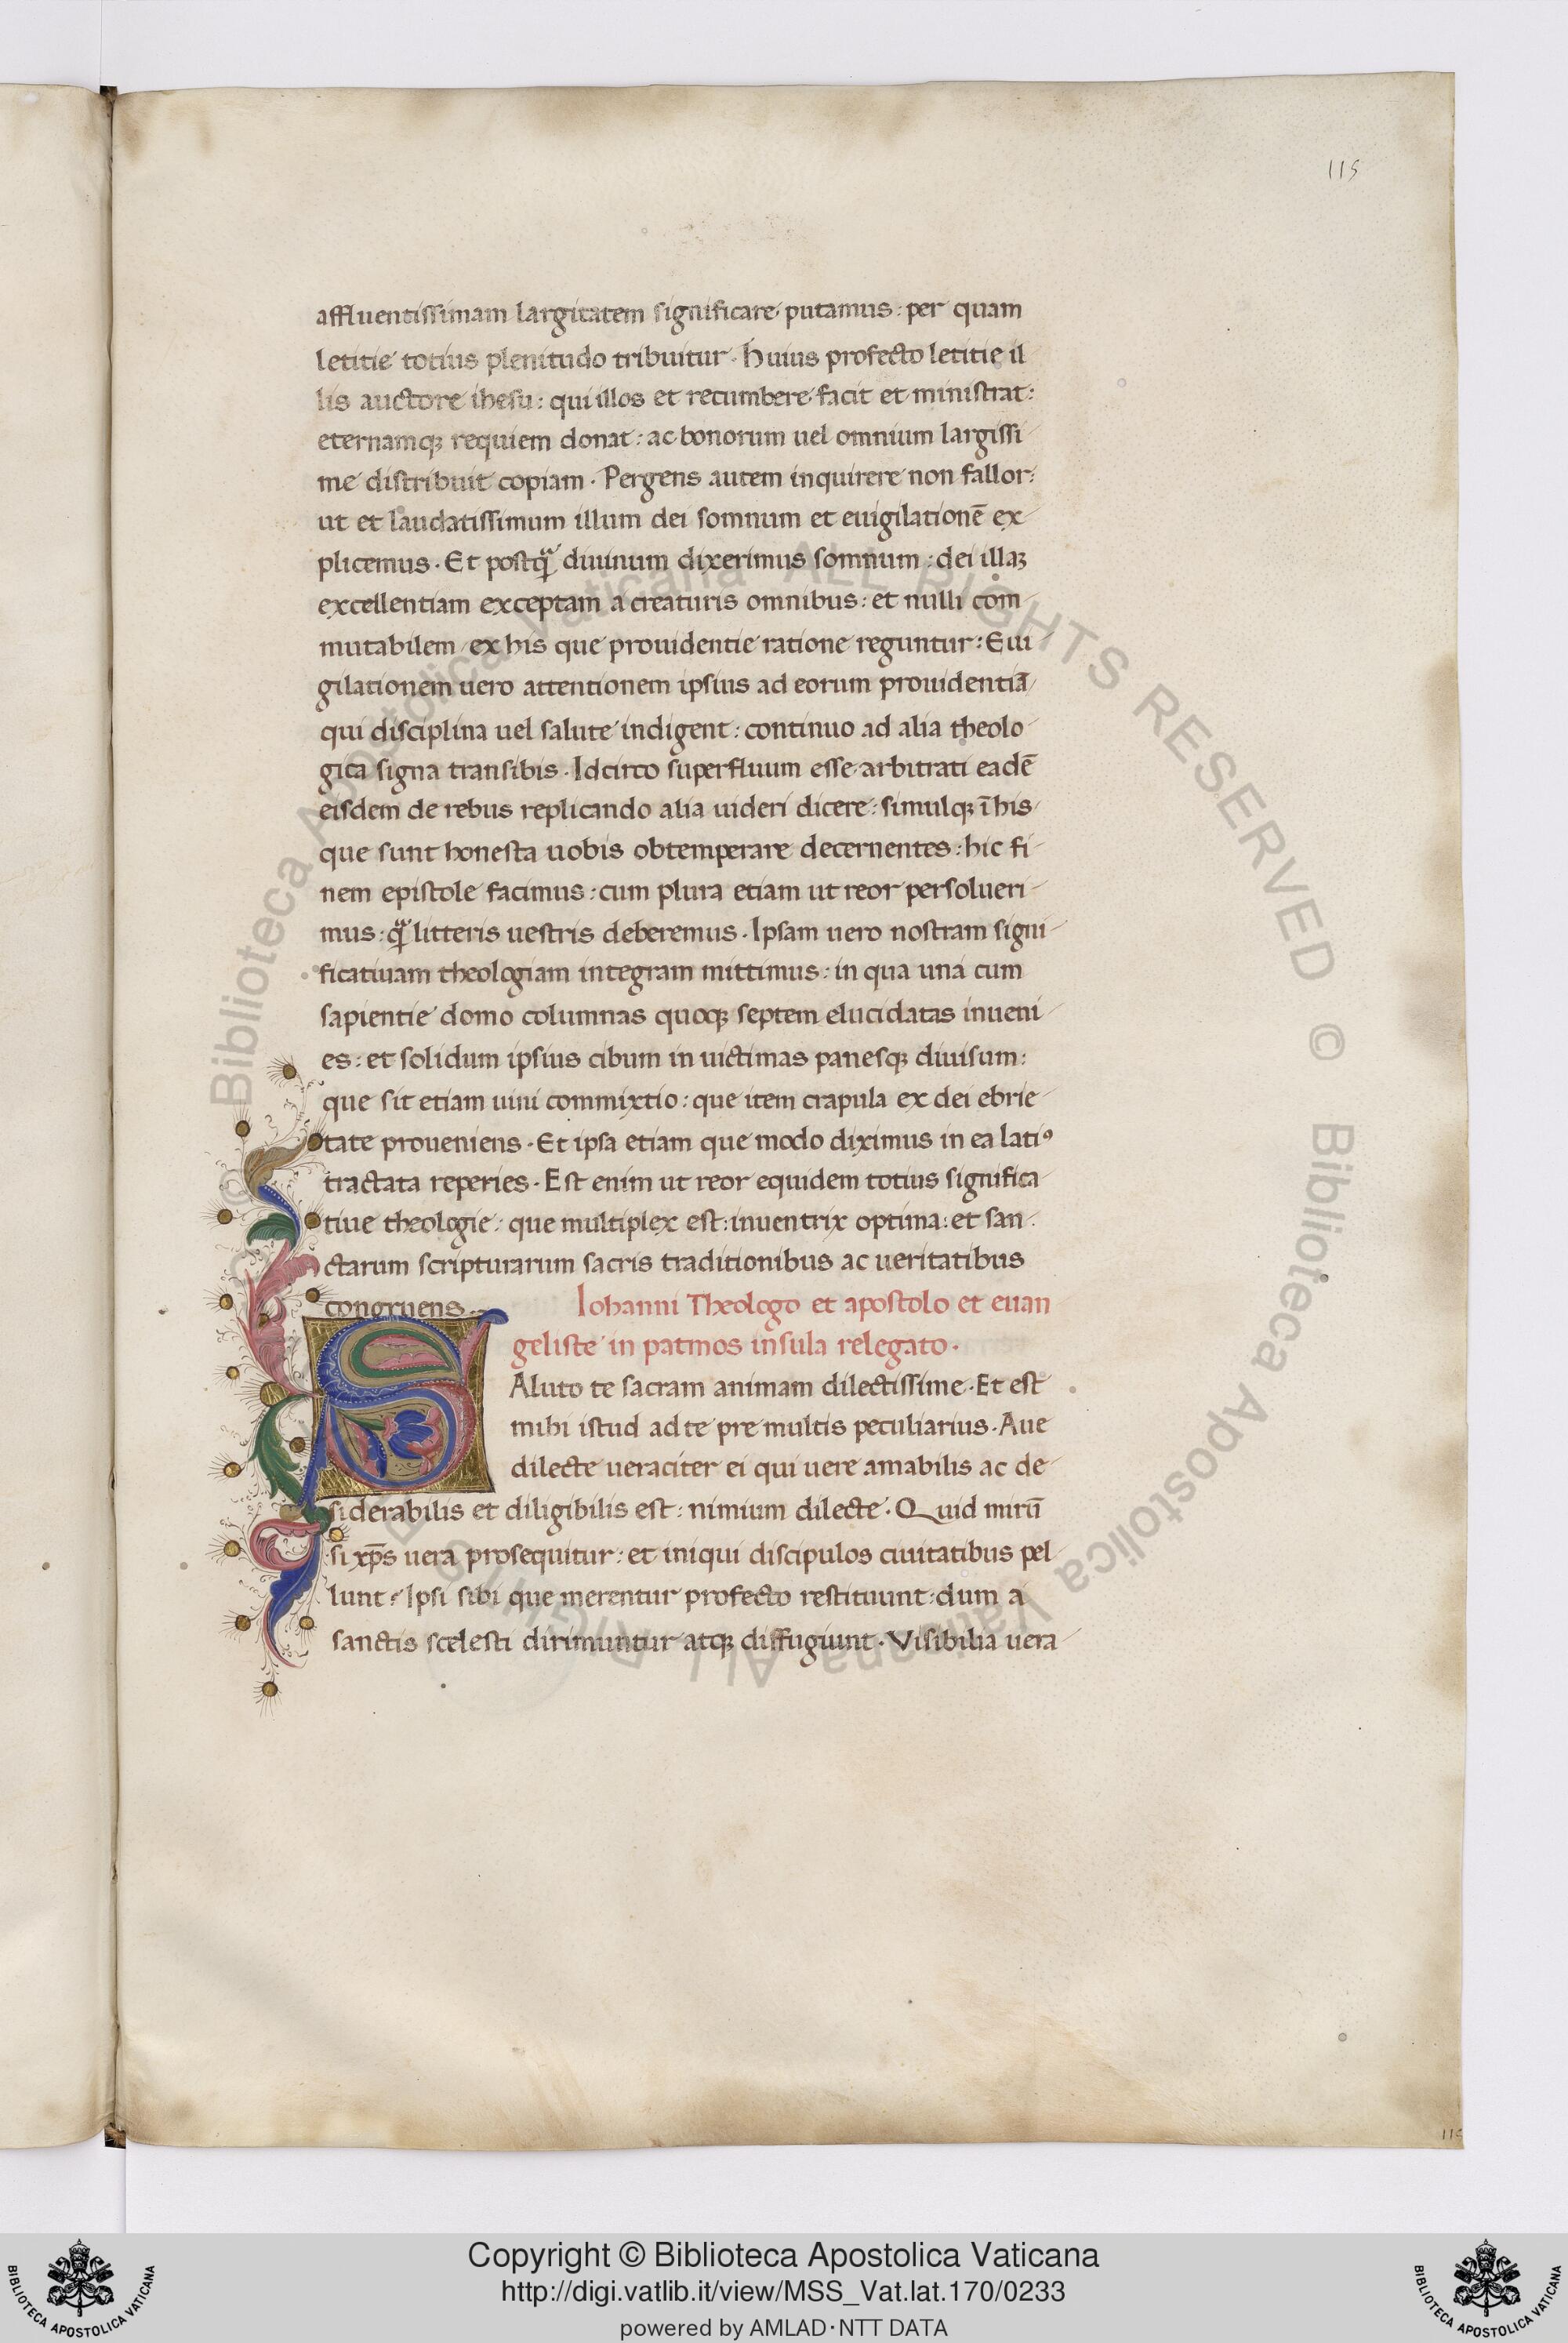 115
affluentissimam largitatem significare putamus: per quam
letitie totius plenitudo tribuitur. Huius profecto letitie il
lis auctore ihesu: qui illos et recumbere facit et ministrat:
eternamqꝫ requiem donat: ac bonorum uel omnium largissi
me distribuit copiam. Pergens autem inquirere non fallor:
ut et laudatissimum illum dei somnum et euigilationē ex
plicemus. Et postq̃ diuinum dixerimus somnum: dei illaꝫ
excellentiam exceptam a creaturis omnibus: et nulli com
mutabilem ex his que prouidentie ratione reguntur: Eui
gilationem uero attentionem ipsius ad eorum prouidentiā
qui disciplina uel salute indigent: continuo ad alia theolo
gica signa transibis. Idcirco superfluum esse arbitrati eadē
eisdem de rebus replicando alia uideri dicere: simulqꝫ ī his
que sunt honesta uobis obtemperare decernentes: hic fi
nem epistole facimus: cum plura etiam ut reor persolueri
mus: q̃ litteris uestris deberemus. Ipsam uero nostram signi
ficatiuam theologiam integram mittimus: in qua una cum
sapientie domo columnas quoqꝫ septem elucidatas inueni
es: et solidum ipsius cibum in uictimas panesqꝫ diuisum:
que sit etiam uini commixtio: que item crapula ex dei ebrie
tate proueniens. Et ipsa etiam que modo diximus in ea latiꝰ
tractata reperies. Est enim ut reor equidem totius significa
tiue theologie: que multiplex est: inuentrix optima: et san
ctarum scripturarum sacris traditionibus ac ueritatibus
congruens.
Iohanni Theologo et apostolo et euan
geliste in patmos insula relegato.
SAluto te sacram animam dilectissime. Et est
mihi istud ad te pre multis peculiarius. Aue
dilecte ueraciter ei qui uere amabilis ac de
siderabilis et diligibilis est: nimium dilecte. Quid mirū
si xp̄s uera prosequitur: et iniqui discipulos ciuitatibus pel
lunt? Ipsi sibi que merentur profecto restituunt: dum a
sanctis scelesti dirimuntur atqꝫ diffugiunt. Visibilia uera
115
© Biblioteca Apostolica Vaticana ALL RIGHTS RESERVED © Biblioteca Apostolica Vaticana ALL RIGHTS RESERVED
BIBLIOTECA APOSTOLICA VATICANA
Copyright © Biblioteca Apostolica Vaticana
http://digi.vatlib.it/view/MSS_Vat.lat.170/0233
powered by AMLAD·NTT DATA
BIBLIOTECA APOSTOLICA VATICANA